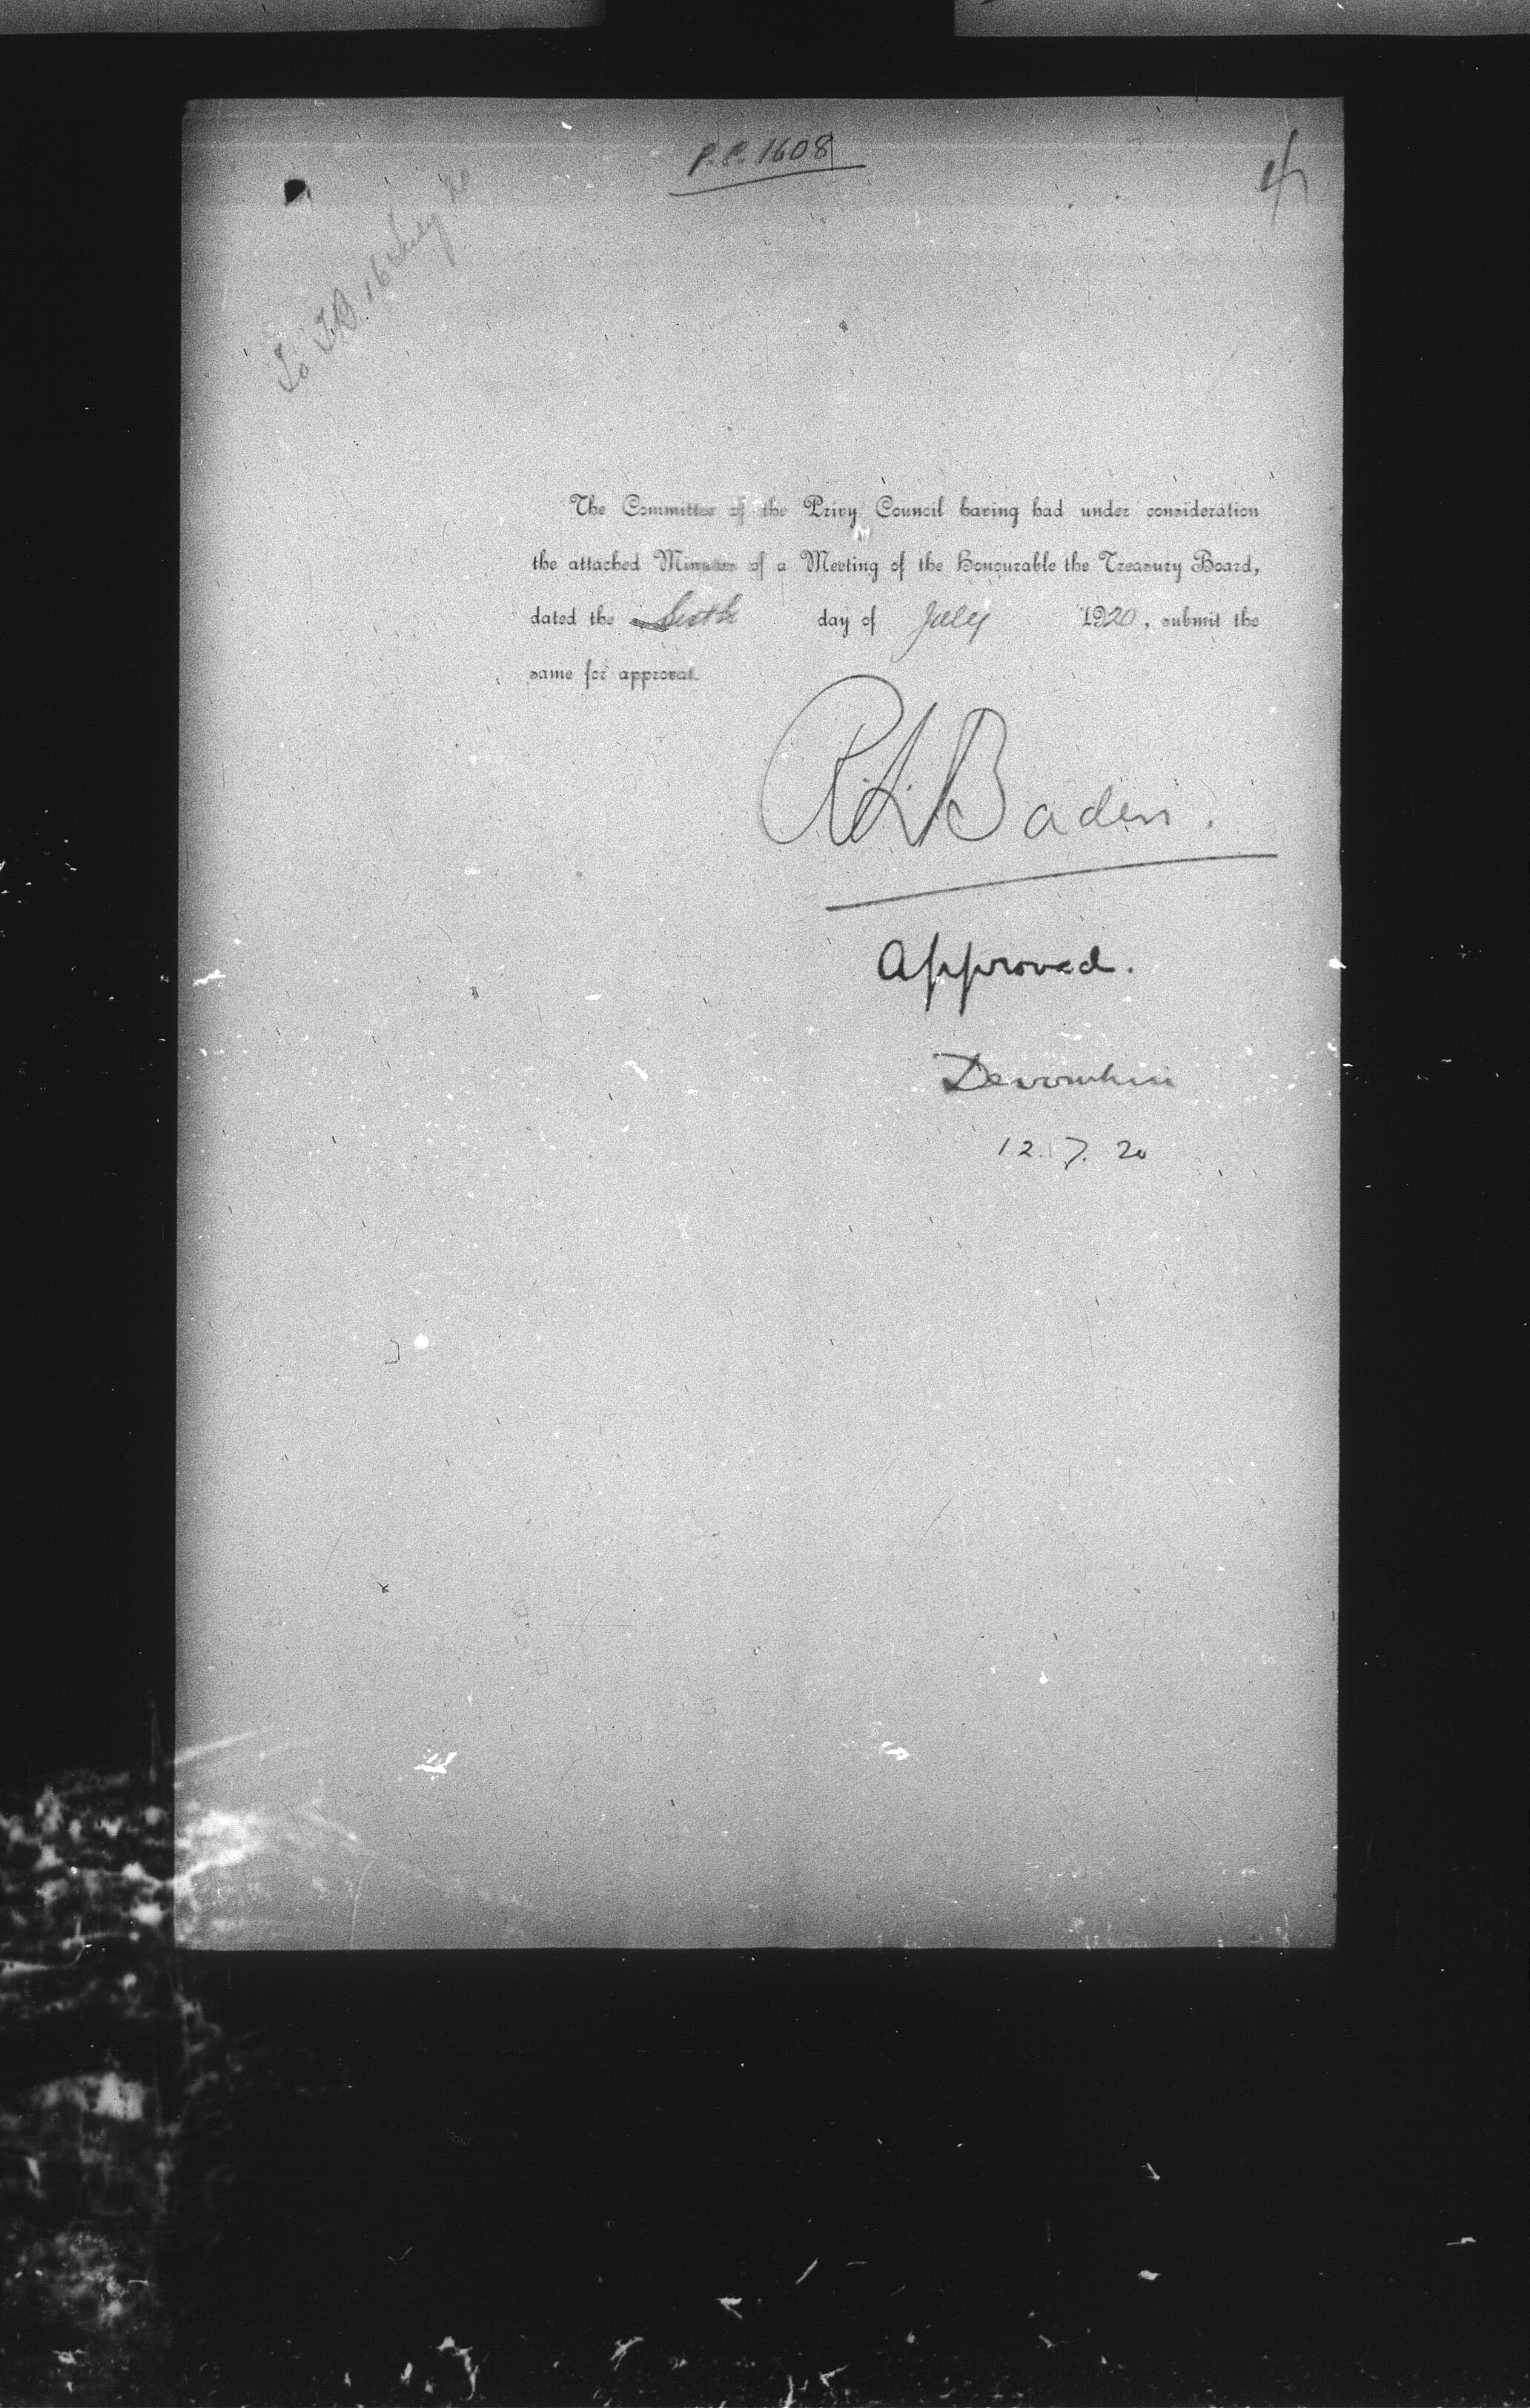 P.C. 1608
To T.B. 16 July 20
The Committee of the Privy Council having had under consideration
the attached Minutes of a Meeting of the Honourable the Treasury Board,
dated the sixth day of July 1920, submit the
same for approval.
Approved.
Devonshire
12.7.20